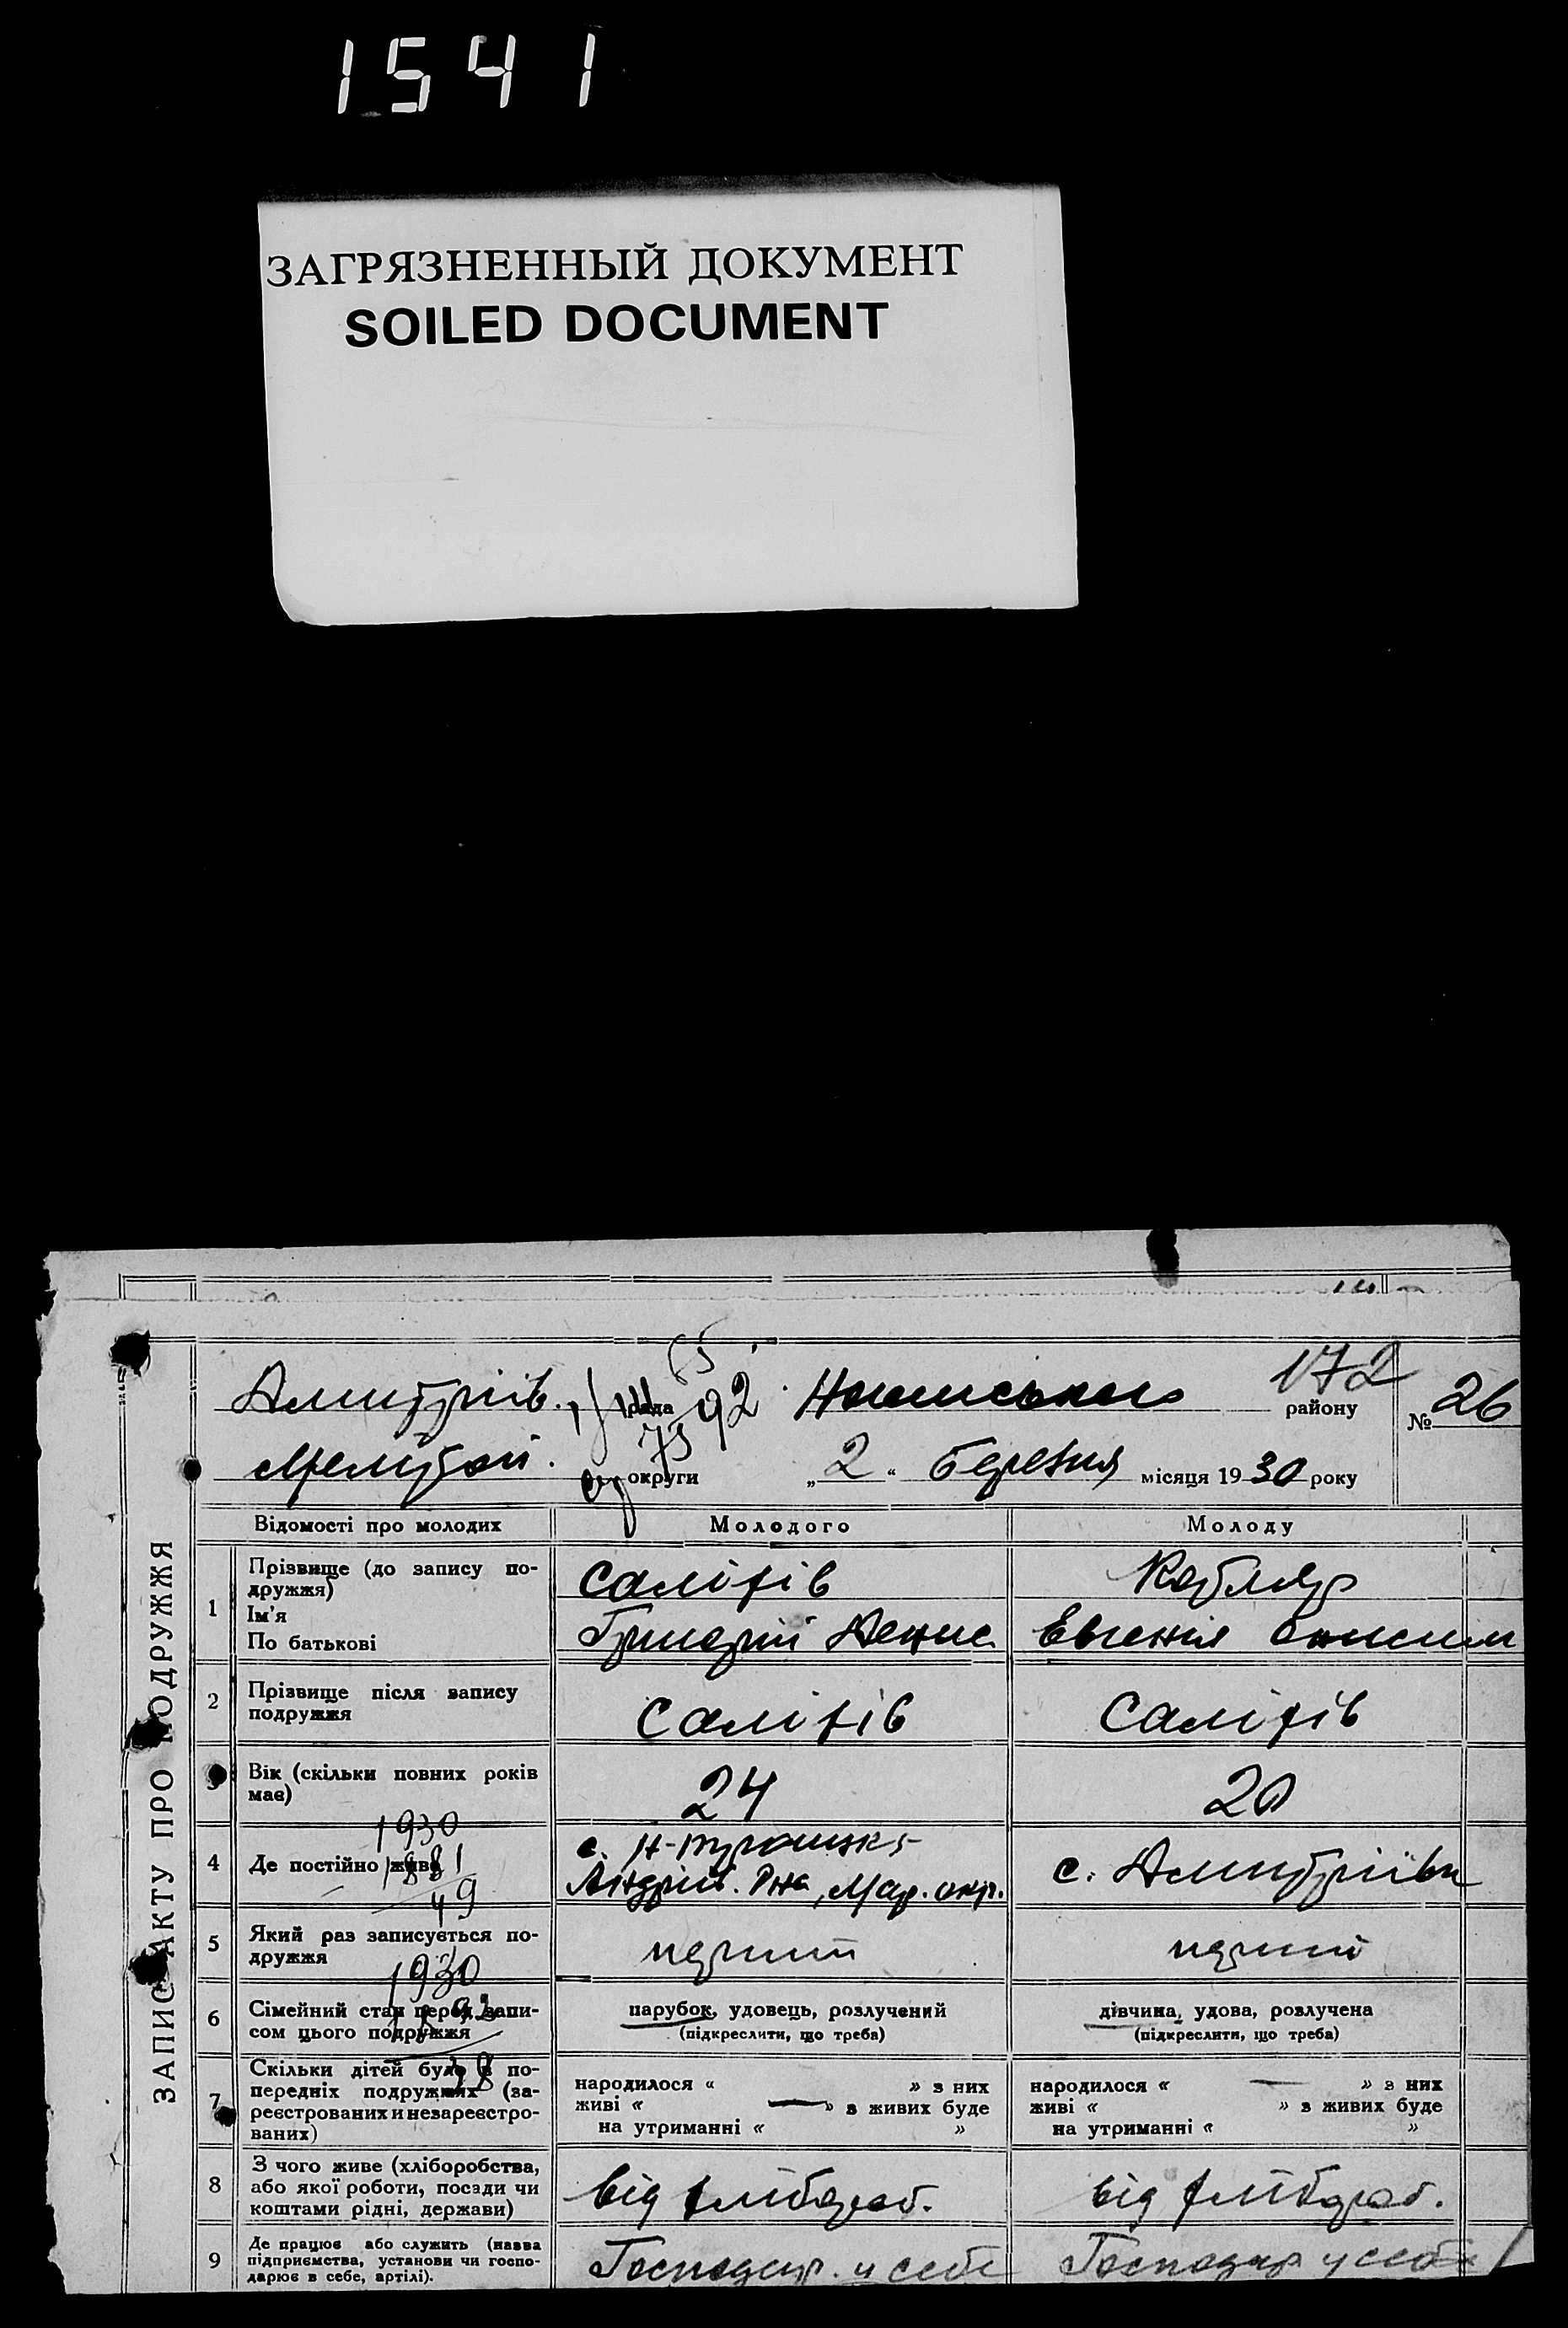 1541
ЗАГРЯЗНЕННЫЙ ДОКУМЕНТ
SOILED DOCUMENT
172
Дмитрїїв. рада 92 району № 26
75
округи „2“ березня місяця 1930 року
ЗАПИС АКТУ ПРО ПОДРУЖЖЯ
Відомості про молодих Молодого Молоду
1 Прізвище (до запису по-
дружжя)
Ім'я
По батькові
Салітів Кобляр
Григорій Денис Евгенія Онисим
2 Прізвище після запису
подружжя
Салітів Салітів
3 Вік (скільки повних років
має)
24 20
1930
4 Де постійно живе
1881
49
с.
Андріїв. Р-на, Мар. окр. с. Дмитрїївки
5 Який раз записується по-
дружжя
перший перший
1930
6 Сімейний стан перед запи-
сом цього подружжя
парубок, удовець, розлучений
(підкреслити, що треба)
дівчина, удова, розлучена
(підкреслити, що треба)
1892
38
7 Скільки дітей було в по-
передніх подружжях (за-
реєстрованих и незареєстро-
ваних)
народилося « » з них
живі « — » з живих буде
на утриманні « »
народилося « — » з них
живі « » з живих буде
на утриманні « »
8 З чого живе (хліборобства,
або якої роботи, посади чи
коштами рідні, держави)
від хлібороб. від хлібороб.
9 Де працює або служить (назва
підприємства, установи чи госпо-
дарює в себе, артілі).
Господар. у себе Господар у себе